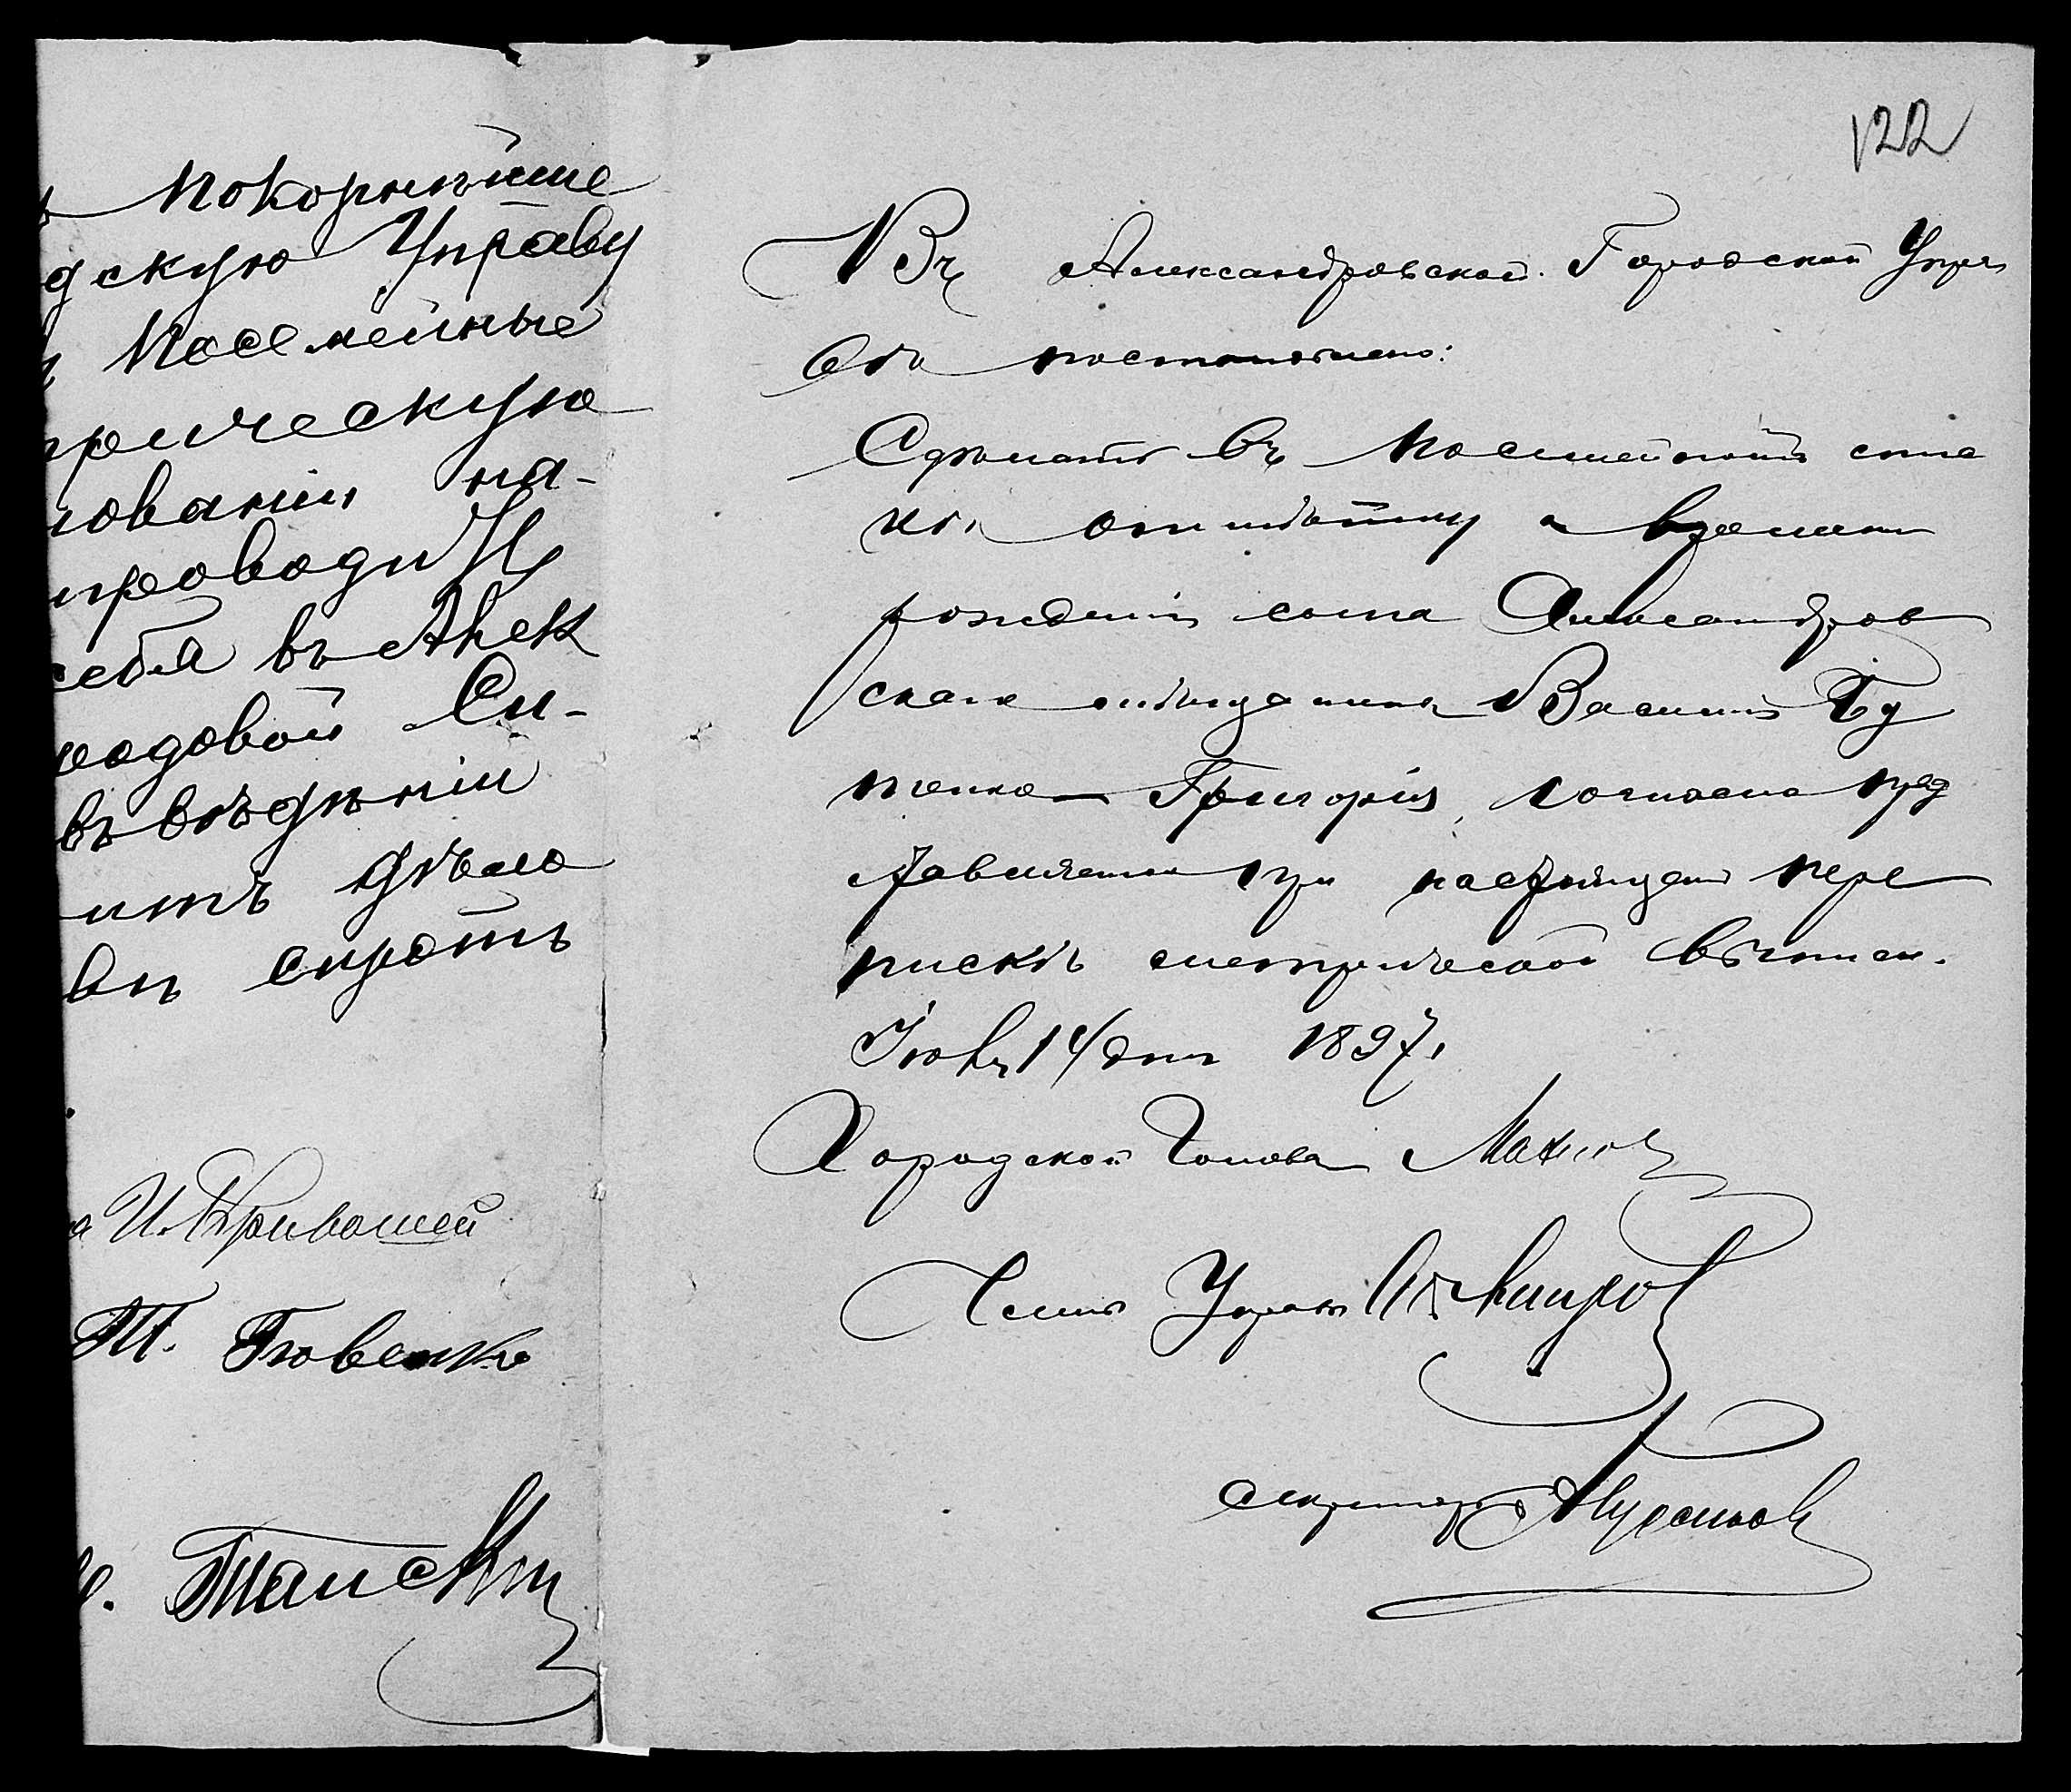 покорнѣйше
дскую Управу
Посемейные
рическую
нованіи на-
проводи
себя въ Алек
родовой Си-
въ вѣдѣніи
итъ дѣло
сиротъ
И. Кривошей
Т. Гювенко
Таискій
122
Въ Александровской Городской Упра
вѣ постановлено:
Сдѣлать въ посемейномъ спис
кѣ отмѣтку о времени
рожденія сына Александров
скаго мѣщанина Василія Бу
тенко Григорія, согласно пред
ставленной при настоящей пере
пискѣ метрической выписи.
Іюня 14 дня 1897.
Городской Голова
Членъ Управы
Секретарь